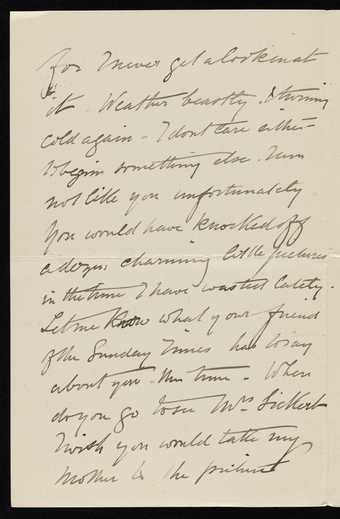 for I never get a look in at
it. Weather beastly. & turning
cold again - I dont care either
to begin something else. I am
not like you unfortunately
You would have knocked off
a dozen charming little pictures
in the time I have wasted lately.
Let me know what your friend
of the Sunday Times has to say
about you this time - When
do you go to see Mrs Sickert
I wish you would take my
mother to the private